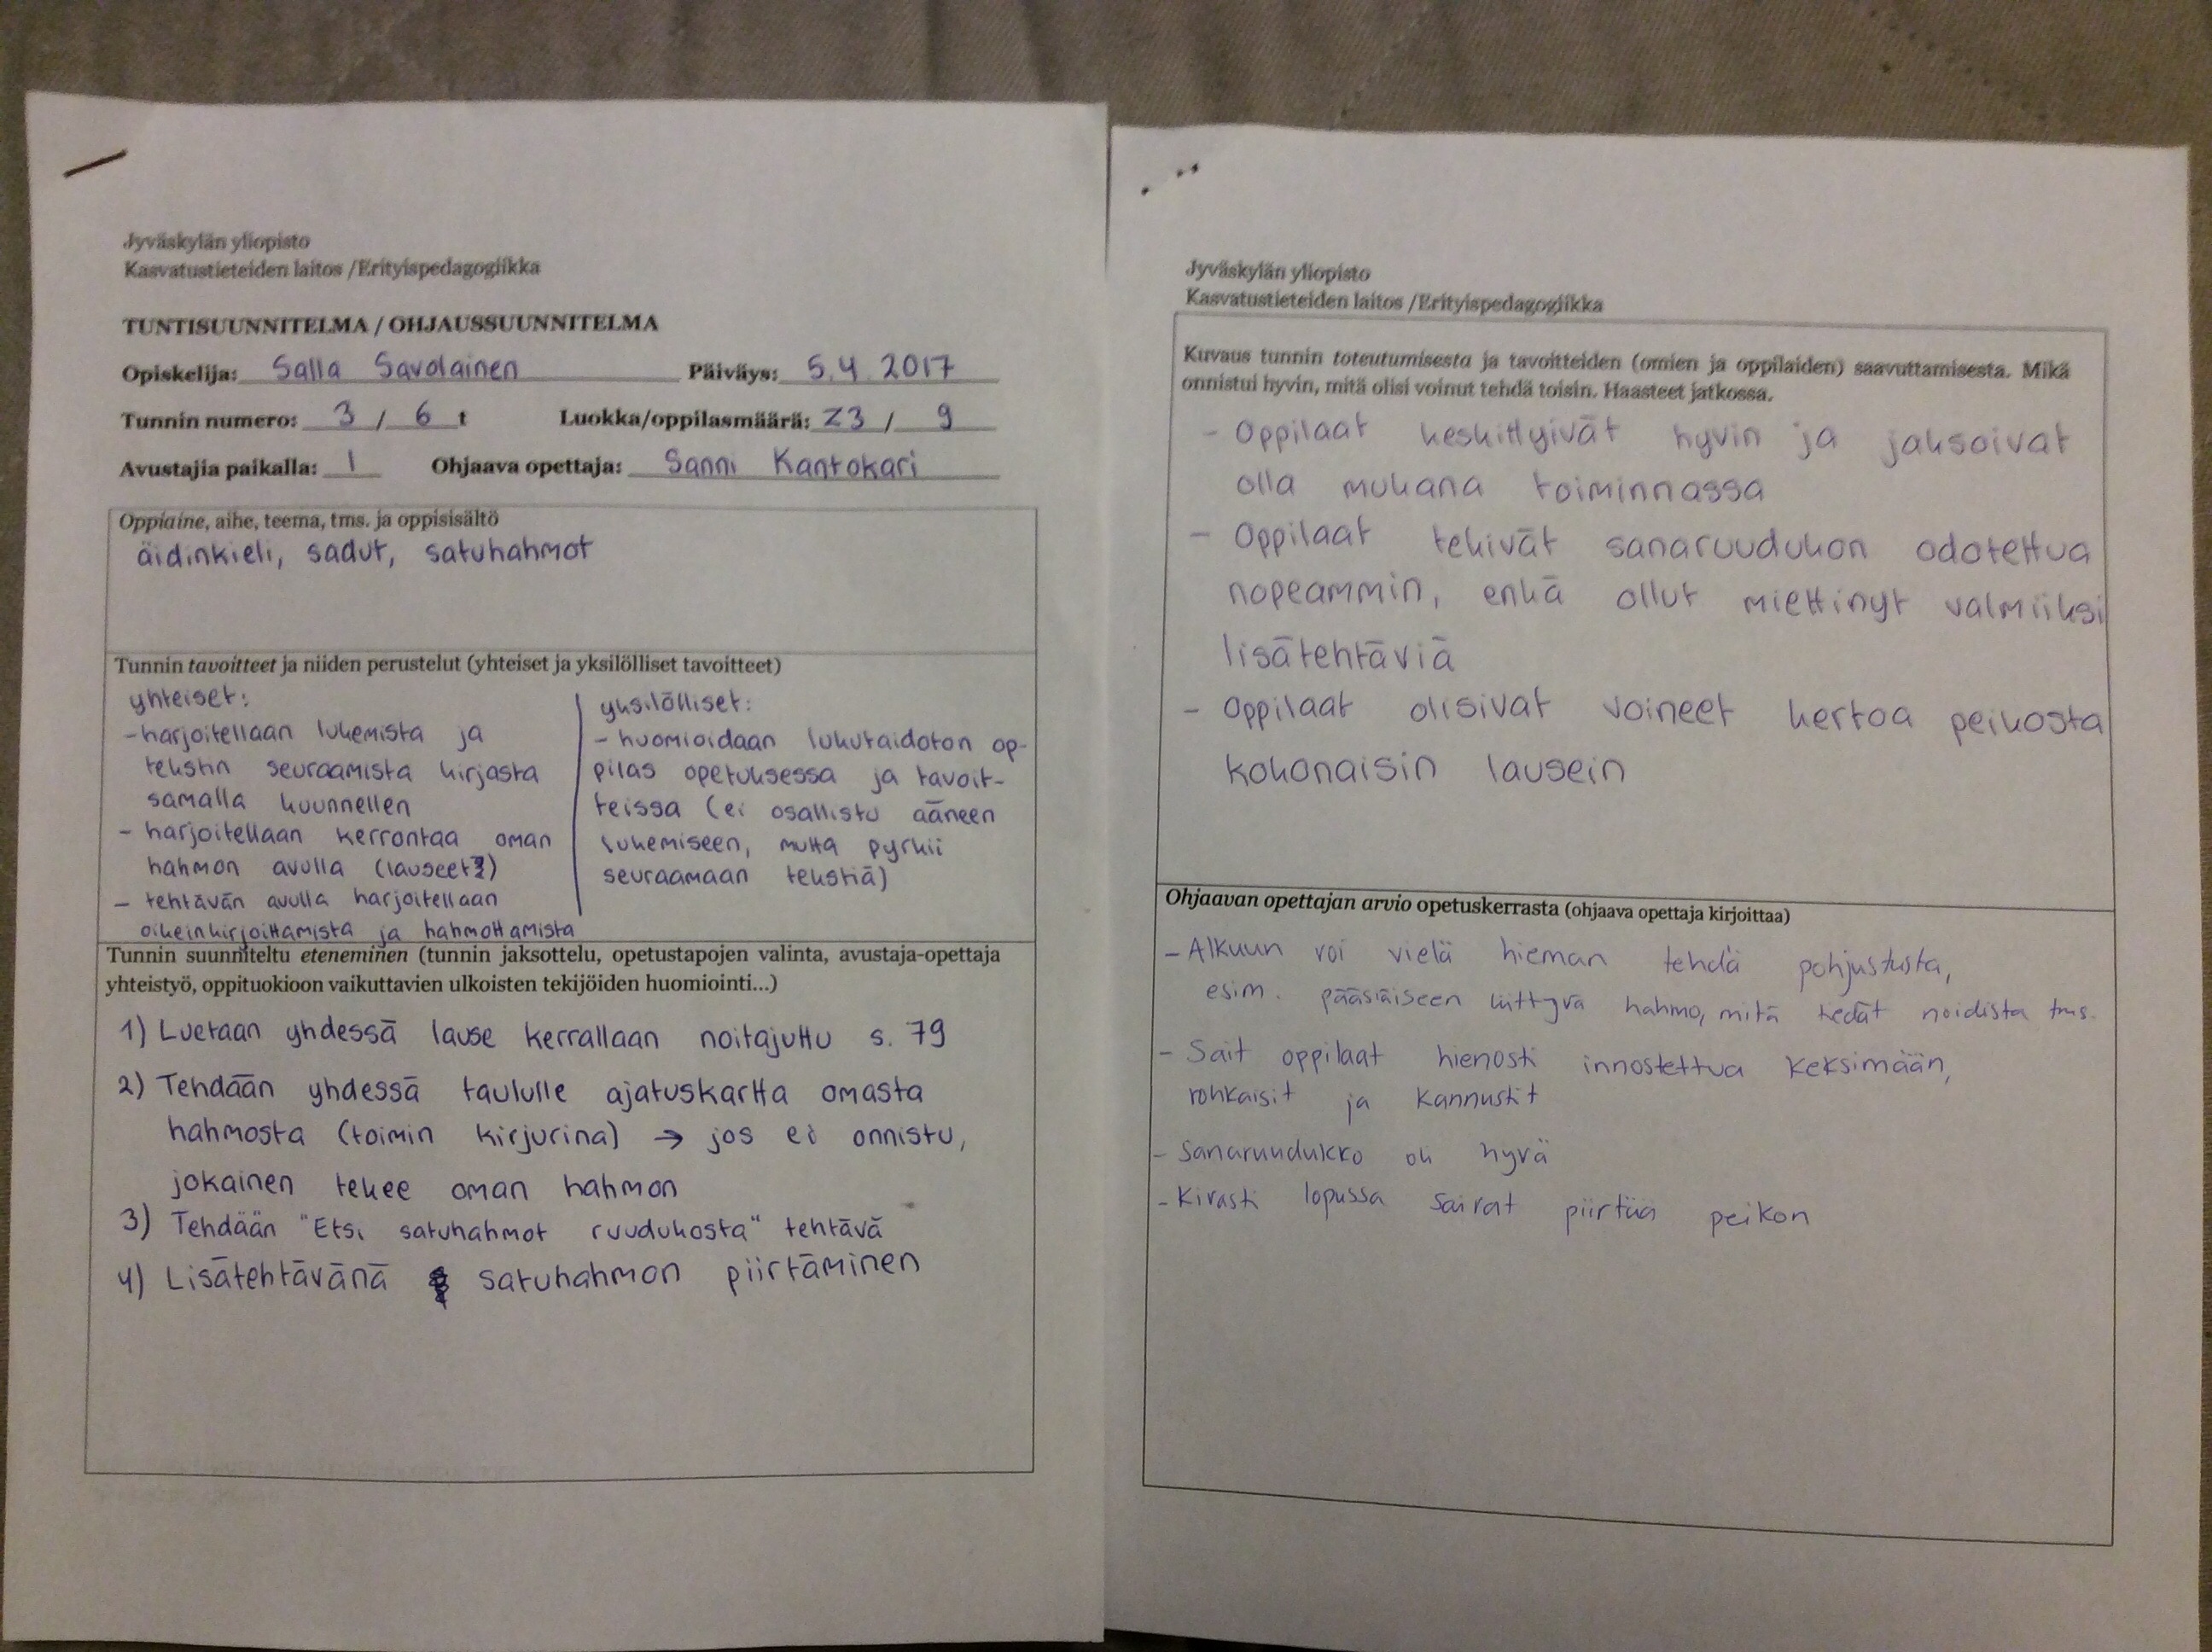 Jyväskylän yliopisto
Kasvatustieteiden laitos /Erityispedagogiikka
TUNTISUUNNITELMA / OHJAUSSUUNNITELMA
Opiskelija: Salla Savolainen Päiväys: 5.4.2017
Tunnin numero: 3 / 6 t Luokka/oppilasmäärä: Z3 / 9
Avustajia paikalla: 1 Ohjaava opettaja: Sanni Kantokari
Oppiaine, aihe, teema, tms. ja oppisisältö
äidinkieli, sadut, satuhahmot
Tunnin tavoitteet ja niiden perustelut (yhteiset ja yksilölliset tavoitteet)
yhteiset:
- harjoitellaan lukemista ja
tekstin seuraamista kirjasta
samalla kuunnellen
- harjoitellaan kerrontaa oman
hahmon avulla (lauseet?)
- tehtävän avulla harjoitellaan
oikeinkirjoittamista ja hahmottamista
yksilölliset:
- huomioidaan lukutaidoton op-
pilas opetuksessa ja tavoit-
teissa (ei osallistu ääneen
lukemiseen, mutta pyrkii
seuraamaan tekstiä)
Tunnin suunniteltu eteneminen (tunnin jaksottelu, opetustapojen valinta, avustaja-opettaja
yhteistyö, oppituokioon vaikuttavien ulkoisten tekijöiden huomiointi...)
1) Luetaan yhdessä lause kerrallaan noitajuttu s. 79
2) Tehdään yhdessä taululle ajatuskartta omasta
hahmosta (toimin kirjurina) → jos ei onnistu,
jokainen tekee oman hahmon
3) Tehdään "Etsi satuhahmot ruudukosta" tehtävä
4) Lisätehtävänä satuhahmon piirtäminen
Jyväskylän yliopisto
Kasvatustieteiden laitos /Erityispedagogiikka
Kuvaus tunnin toteutumisesta ja tavoitteiden (omien ja oppilaiden) saavuttamisesta. Mikä
onnistui hyvin, mitä olisi voinut tehdä toisin. Haasteet jatkossa.
- Oppilaat keskittyivät hyvin ja jaksoivat
olla mukana toiminnassa
- Oppilaat tekivät sanaruudukon odotettua
nopeammin, enkä ollut miettinyt valmiiksi
lisätehtäviä
- Oppilaat olisivat voineet kertoa peikosta
kokonaisin lausein
Ohjaavan opettajan arvio opetuskerrasta (ohjaava opettaja kirjoittaa)
- Alkuun voi vielä hieman tehdä pohjustusta,
esim. pääsiäiseen liittyvä hahmo, mitä tiedät noidista tms.
- Sait oppilaat hienosti innostettua keksimään,
rohkaisit ja kannustit
- Sanaruudukko oli hyvä
- Kivasti lopussa saivat piirtää peikon